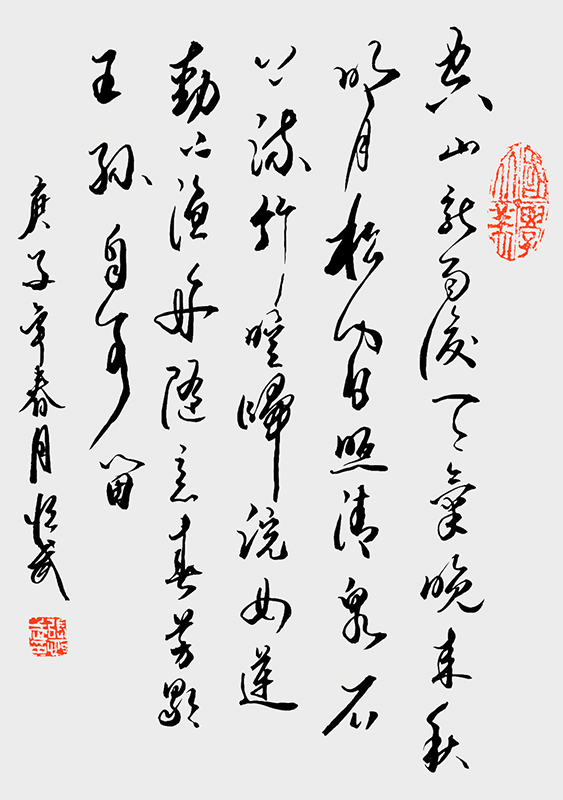 空山新雨後天氣晚來秋
明月松間照清泉石
上流竹喧歸浣女蓮
動下漁舟隨意春芳歇
王孫自可留
庚子年春月恒武